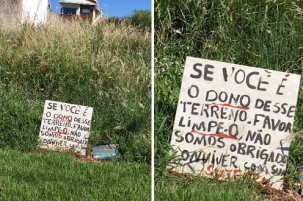 SE VOCÊ É
O DONO DESSE
TERRENO. FAVOR
LIMPEO, NÃO
SOMOS OBRIGADO
SE VOCÊ É
O DONO DESSE
TERRENO. FAVOR
LIMPEO, NÃO
SOMOS OBRIGADO
CONVIVER COM SUA